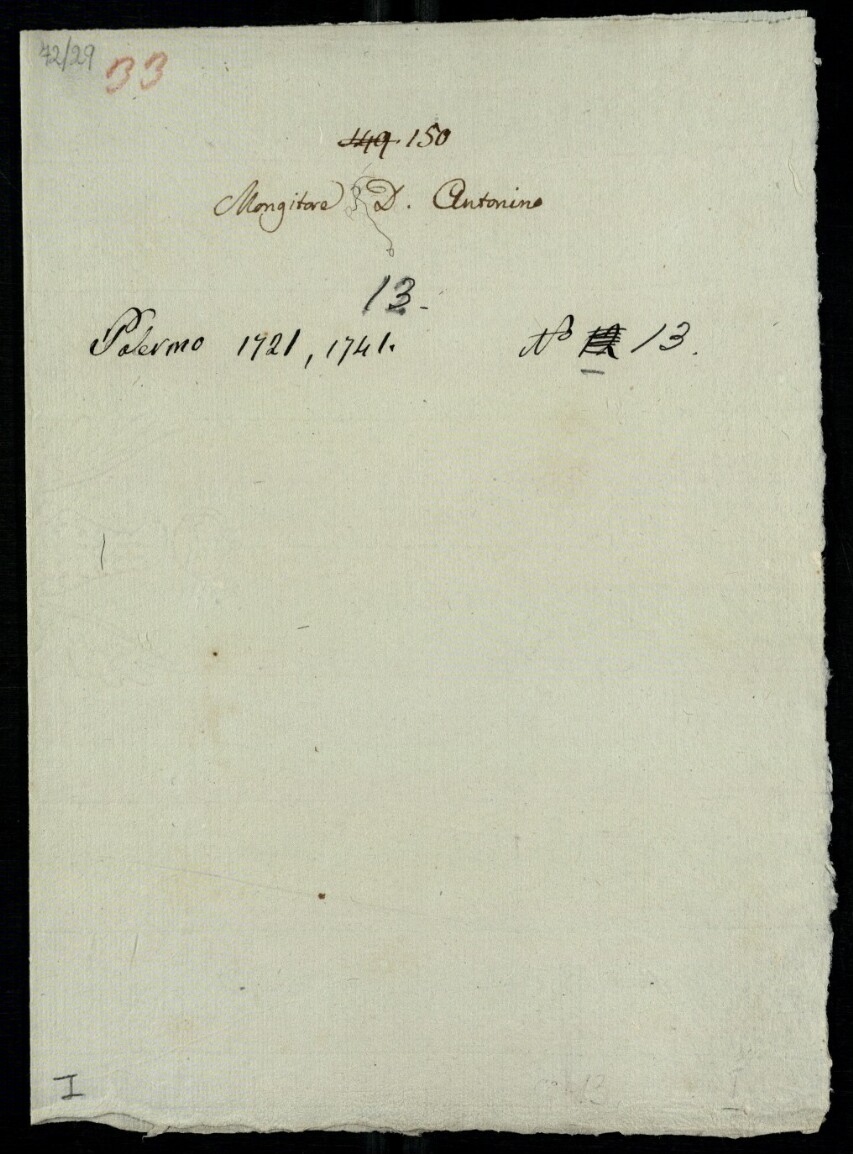 42/29 33
149. 150
Mongitore D. Antonino
13.
Palermo 1721, 1741. No 13.
I
13 I